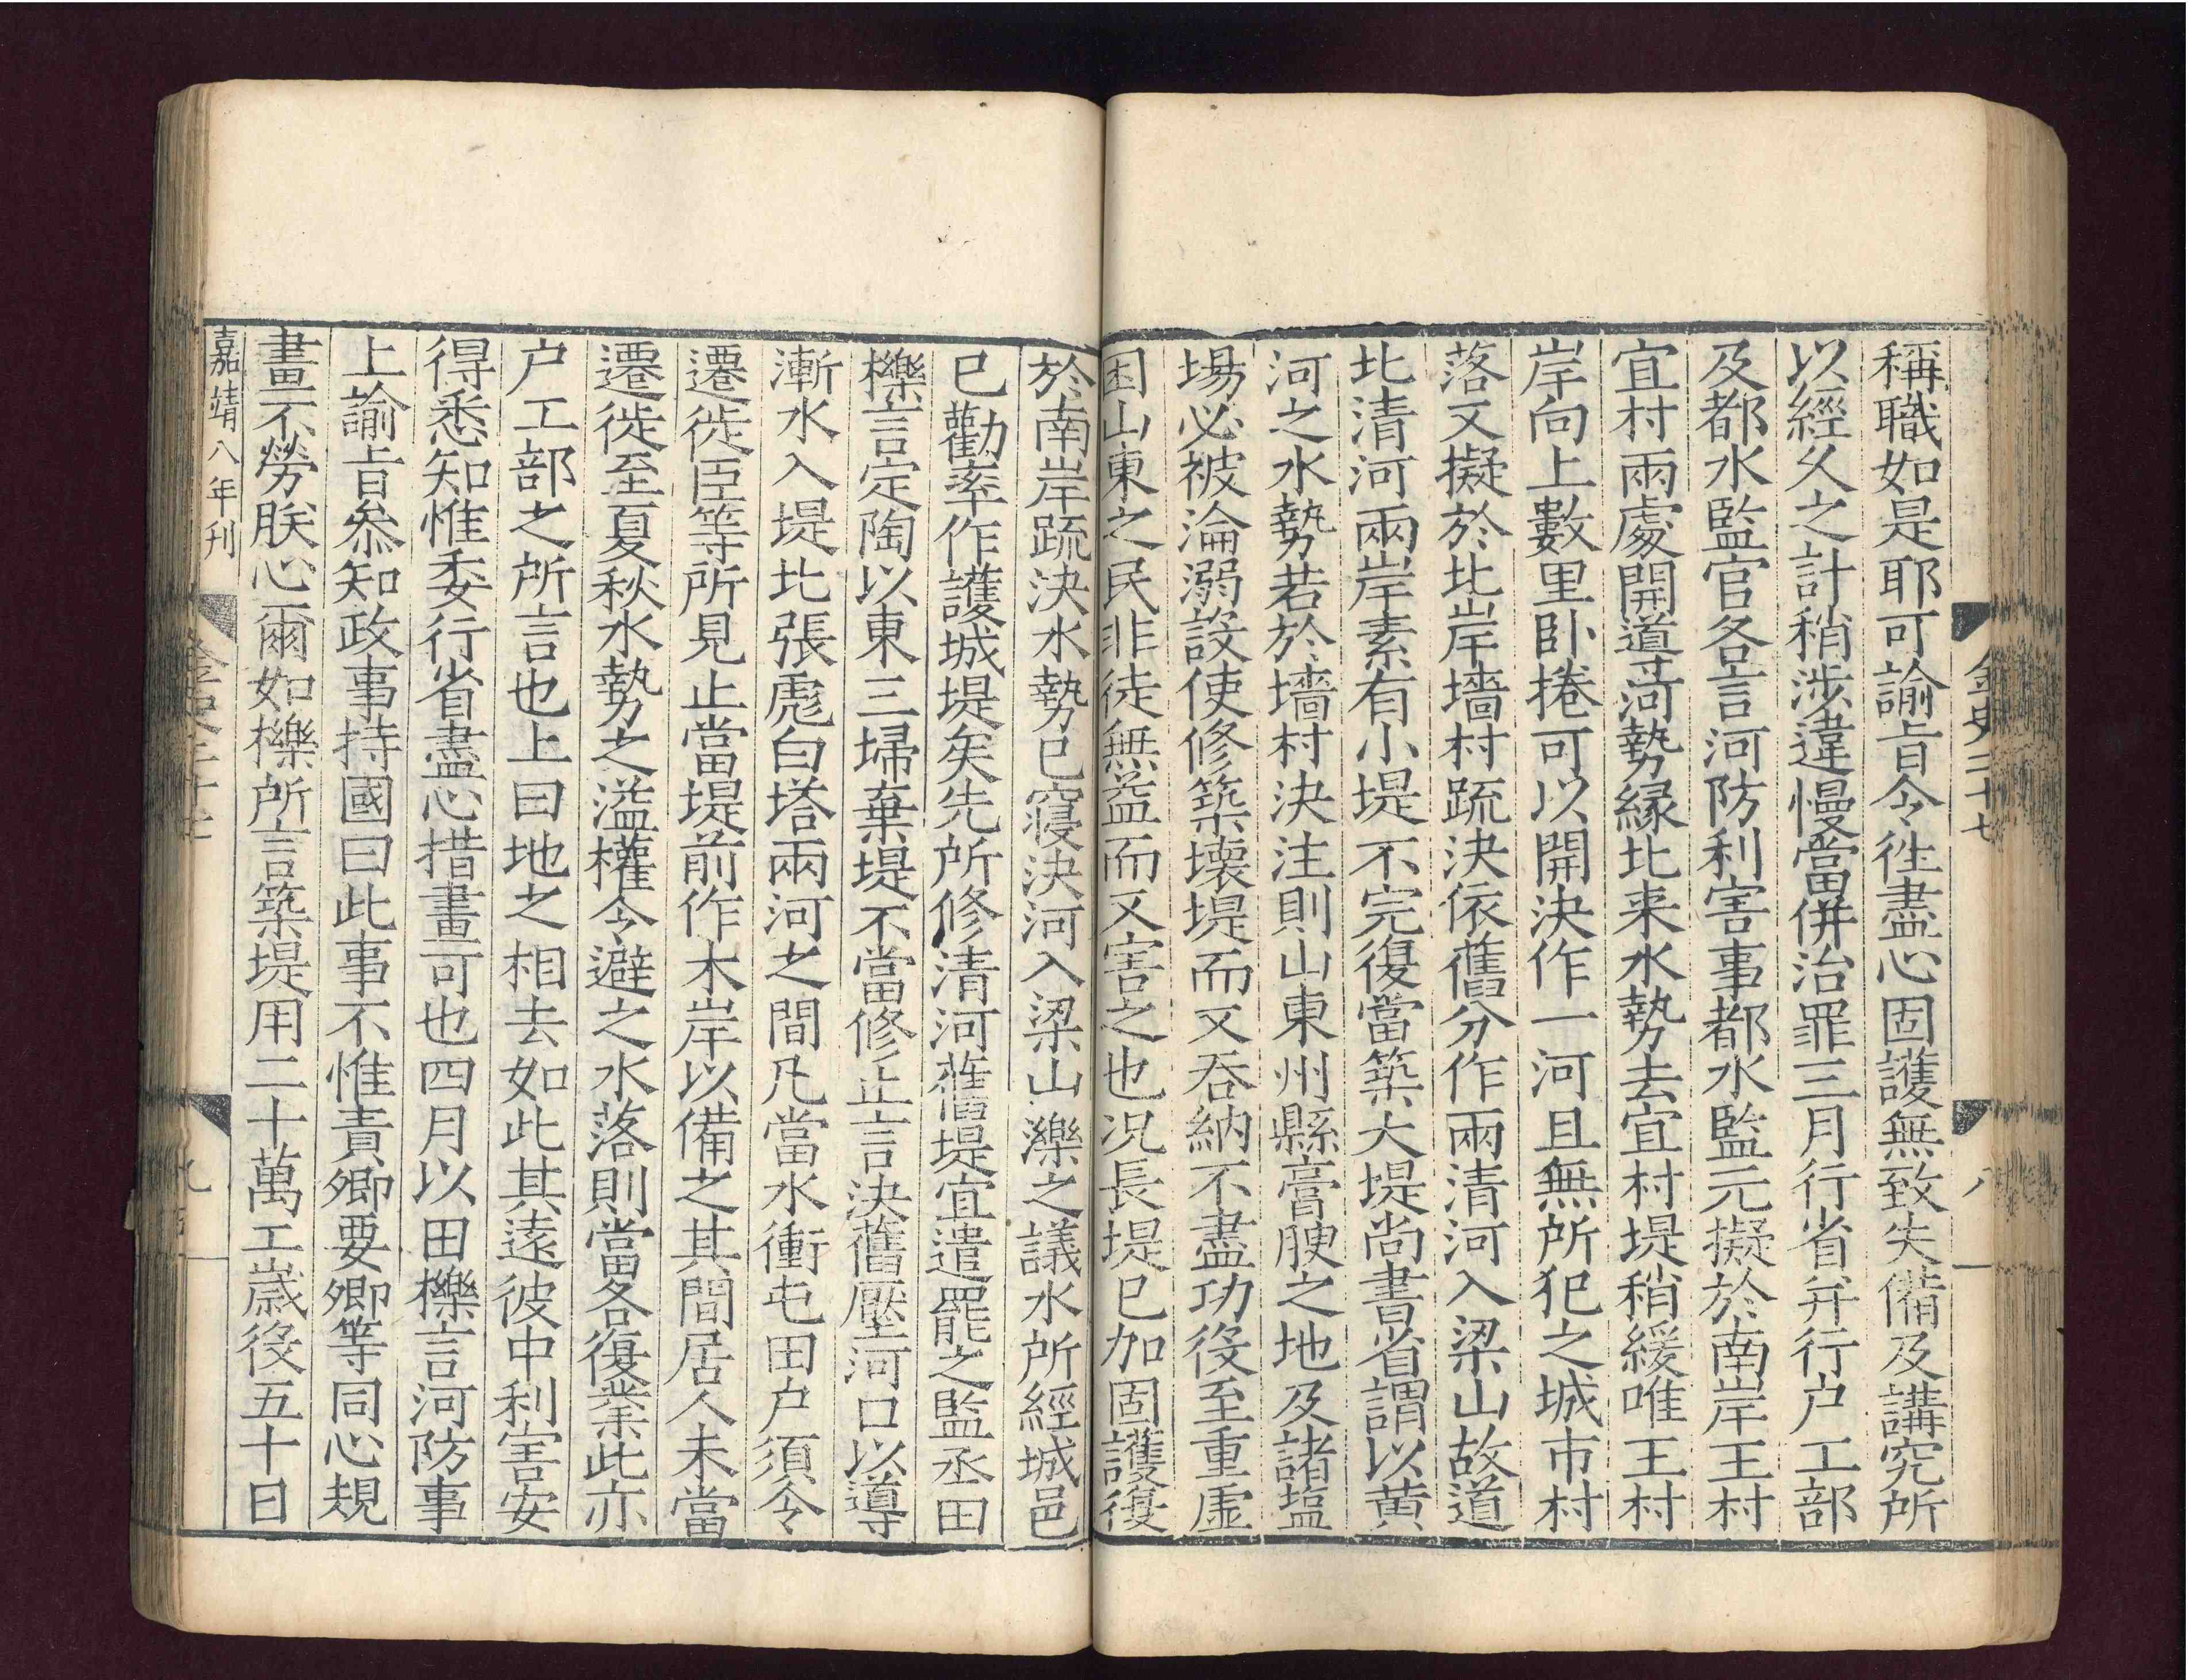 金史二十七
八
稱職如是耶可諭旨令往盡心固護無致失備及講究所
以經久之計稍涉違慢當併治罪三月行省并行户工部
及都水監官各言河防利害事都水監元擬於南岸王村
宜村兩處開導河勢緣北来水勢去宜村堤稍緩唯王村
岸向上數里卧捲可以開決作一河且無所犯之城市村
落又擬於北岸墻村疏決依舊分作兩清河入梁山故道
北清河兩岸素有小堤不完復當築大堤尚書省謂以黄
河之水勢若於墻村決注則山東州縣膏腴之地及諸塩
場必被淪溺設使修築壊堤而又吞納不盡功役至重虚
困山東之民非徒無益而又害之也况長堤已加固護復
於南岸疏決水勢已寢決河入梁山濼之議水所經城邑
已勸率作護城堤矣先所修清河舊堤宜遣罷之監丞田
櫟言定陶以東三埽棄堤不當修止言決舊壓河口以導
漸水入堤北張彪白塔兩河之間凡當水衝屯田户須令
遷徙臣等所見止當堤前作木岸以備之其間居人未當
遷徙至夏秋水勢之溢權令避之水落則當各復業此亦
户工部之所言也上曰地之相去如此其遠彼中利害安
得悉知惟委行省盡心措畫可也四月以田櫟言河防事
上諭旨叅知政事持國曰此事不惟責卿要卿等同心規
畫不勞朕心爾如櫟所言築堤用二十萬工歳役五十日
嘉靖八年刊
金史二十七
九